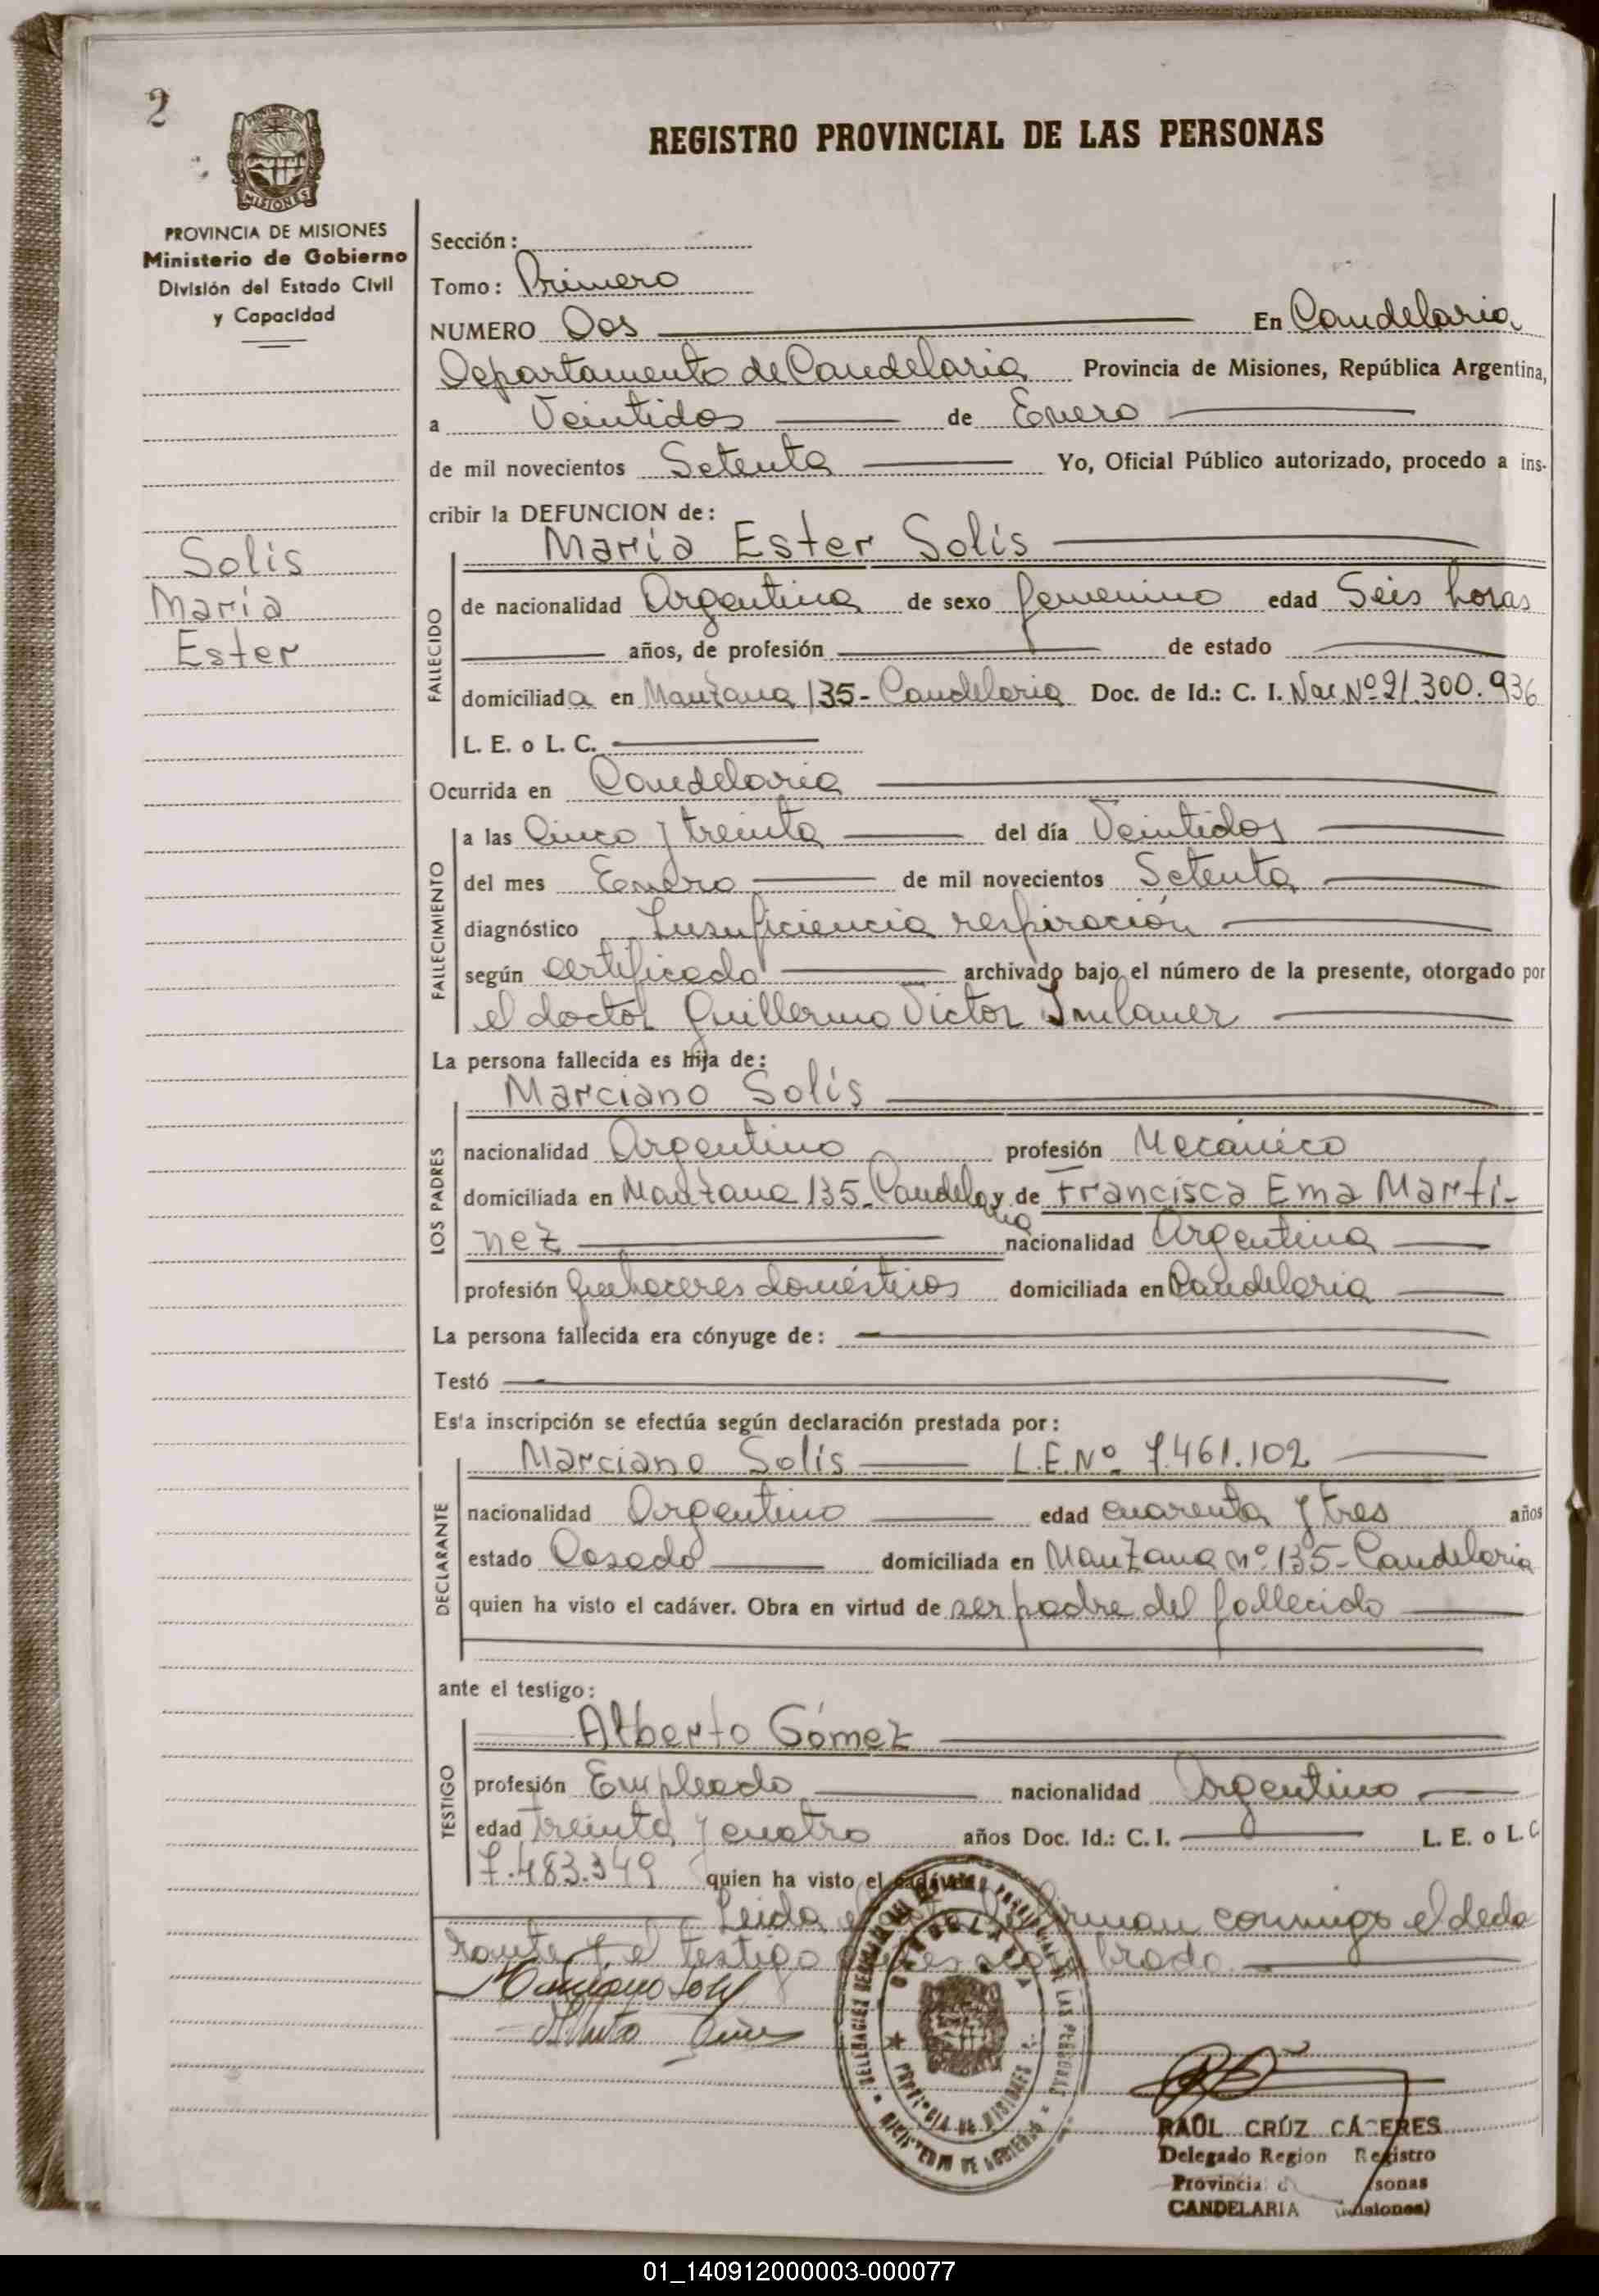 2
REGISTRO PROVINCIAL DE LAS PERSONAS
MISIONES
PROVINCIA DE MISIONES
Ministerio de Gobierno
División del Estado Civil
y Capacidad
Solís
María
Ester
Sección:
Tomo: Primero
NUMERO Dos En Candelaria
Departamento de Candelaria Provincia de Misiones, República Argentina,
a Veintidos de Enero
de mil novecientos Setenta Yo, Oficial Público autorizado, procedo a ins-
cribir la DEFUNCION de:
María Ester Solís
FALLECIDO
de nacionalidad Argentina de sexo femenino edad Seis horas
años, de profesión de estado
domiciliada en Manzana 135- Candelaria Doc. de Id.: C. I. Nac Nº 21.300.936
L. E. o L. C.
Ocurrida en Candelaria
FALLECIMIENTO
a las Cinco y treinta del día Veintidos
del mes Enero de mil novecientos Setenta
diagnóstico Insuficiencia respiración
según certificado archivado bajo el número de la presente, otorgado por
el doctor Guillermo Victor
La persona fallecida es hija de:
Marciano Solís
LOS PADRES
nacionalidad Argentino profesión Mecánico
domiciliada en Manzana 135-Candelaria y de Francisca Ema Martí-
nez nacionalidad Argentina
profesión Quehaceres domésticos domiciliada en Candelaria
La persona fallecida era cónyuge de:
Testó
Esta inscripción se efectúa según declaración prestada por:
Marciano Solís L.E.Nº 7.461.102
DECLARANTE
nacionalidad Argentino edad cuarenta y tres años
estado Casado domiciliada en Manzana nº 135-Candelaria
quien ha visto el cadáver. Obra en virtud de ser padre del fallecido
ante el testigo:
Alberto Gómez
TESTIGO
profesión Empleado nacionalidad Argentino
edad treinta y cuatro años Doc. Id.: C. I. L. E. o L. C
7.483.349 quien ha visto el cadáver
Leida el acta la firman conmigo el decla
rante y el testigo
Marciano Solis
PROVINCIA DE MISIONES
MINISTERIO DE GOBIERNO
RAÚL CRÚZ CÁCERES
Delegado Region Registro
Provincia sonas
CANDELARIA (Misiones)
01_140912000003-000077